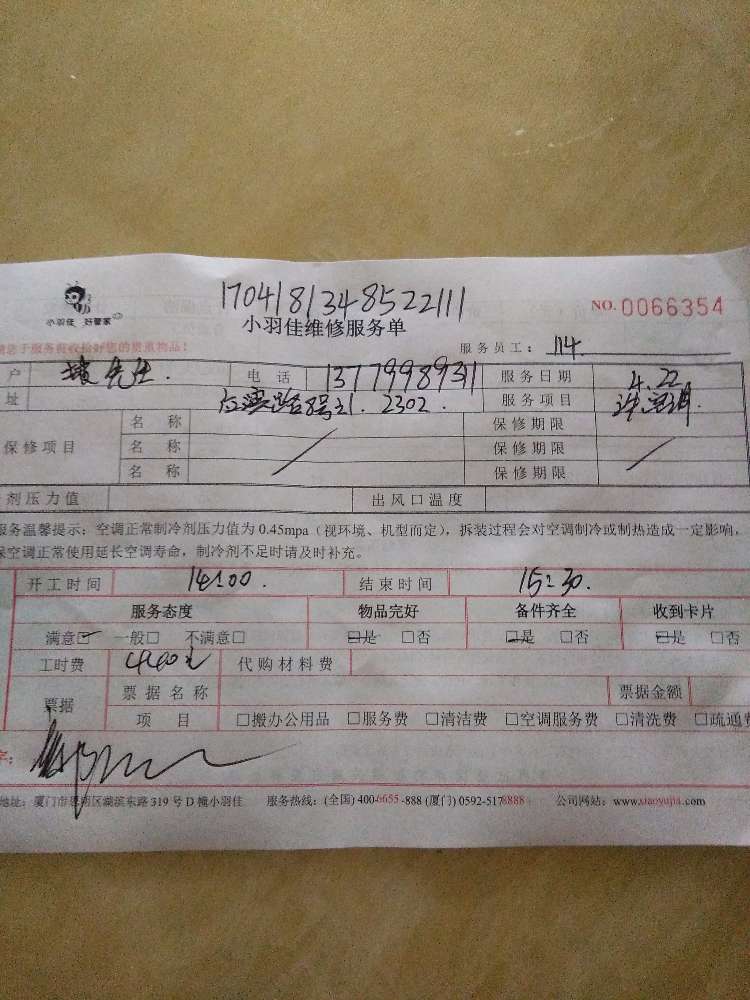 170418134852 2111
小羽佳 好管家
小羽佳维修服务单
NO. 0066354
请您于服务前收拾好您的贵重物品!
服务员工: 114.
户 先生. 电话 13779989311 服务日期 4.22
址 8号21. 2302. 服务项目
保修项目 名称 保修期限
名称 保修期限
名称 保修期限
剂压力值 出风口温度
服务温馨提示:空调正常制冷剂压力值为 0.45mpa(视环境、机型而定),拆装过程会对空调制冷或制热造成一定影响,
保空调正常使用延长空调寿命,制冷剂不足时请及时补充。
开工时间 14:00. 结束时间 15:30.
服务态度 物品完好 备件齐全 收到卡片
满意☑ 一般□ 不满意□ □是 □否 □是 □否 □是 □否
工时费 440元 代购材料费
票据 票据名称 票据金额
项目 □搬办公用品 □服务费 □清洁费 □空调服务费 □清洗费 □疏通费
字:
地址:厦门市思明区湖滨东路 319 号 D 幢小羽佳 服务热线:(全国) 400-6655-888 (厦门) 0592-5178888 公司网站:www.xiaoyujia.com